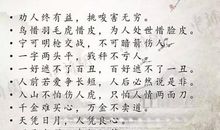 劝人终有益，挑唆害无穷。
鸟惜羽毛虎惜皮，为人处世惜脸皮。
宁可明枪交战，不可暗箭伤人。
一字两头平，我秤不亏人。
一好遮不了百丑，百好遮不了一丑。
人前若爱争长短，人后必然说是非。
入山不怕伤人虎，只怕人情两面刀。
千金难买心，万金不卖道。
天凭日月，人凭良心。